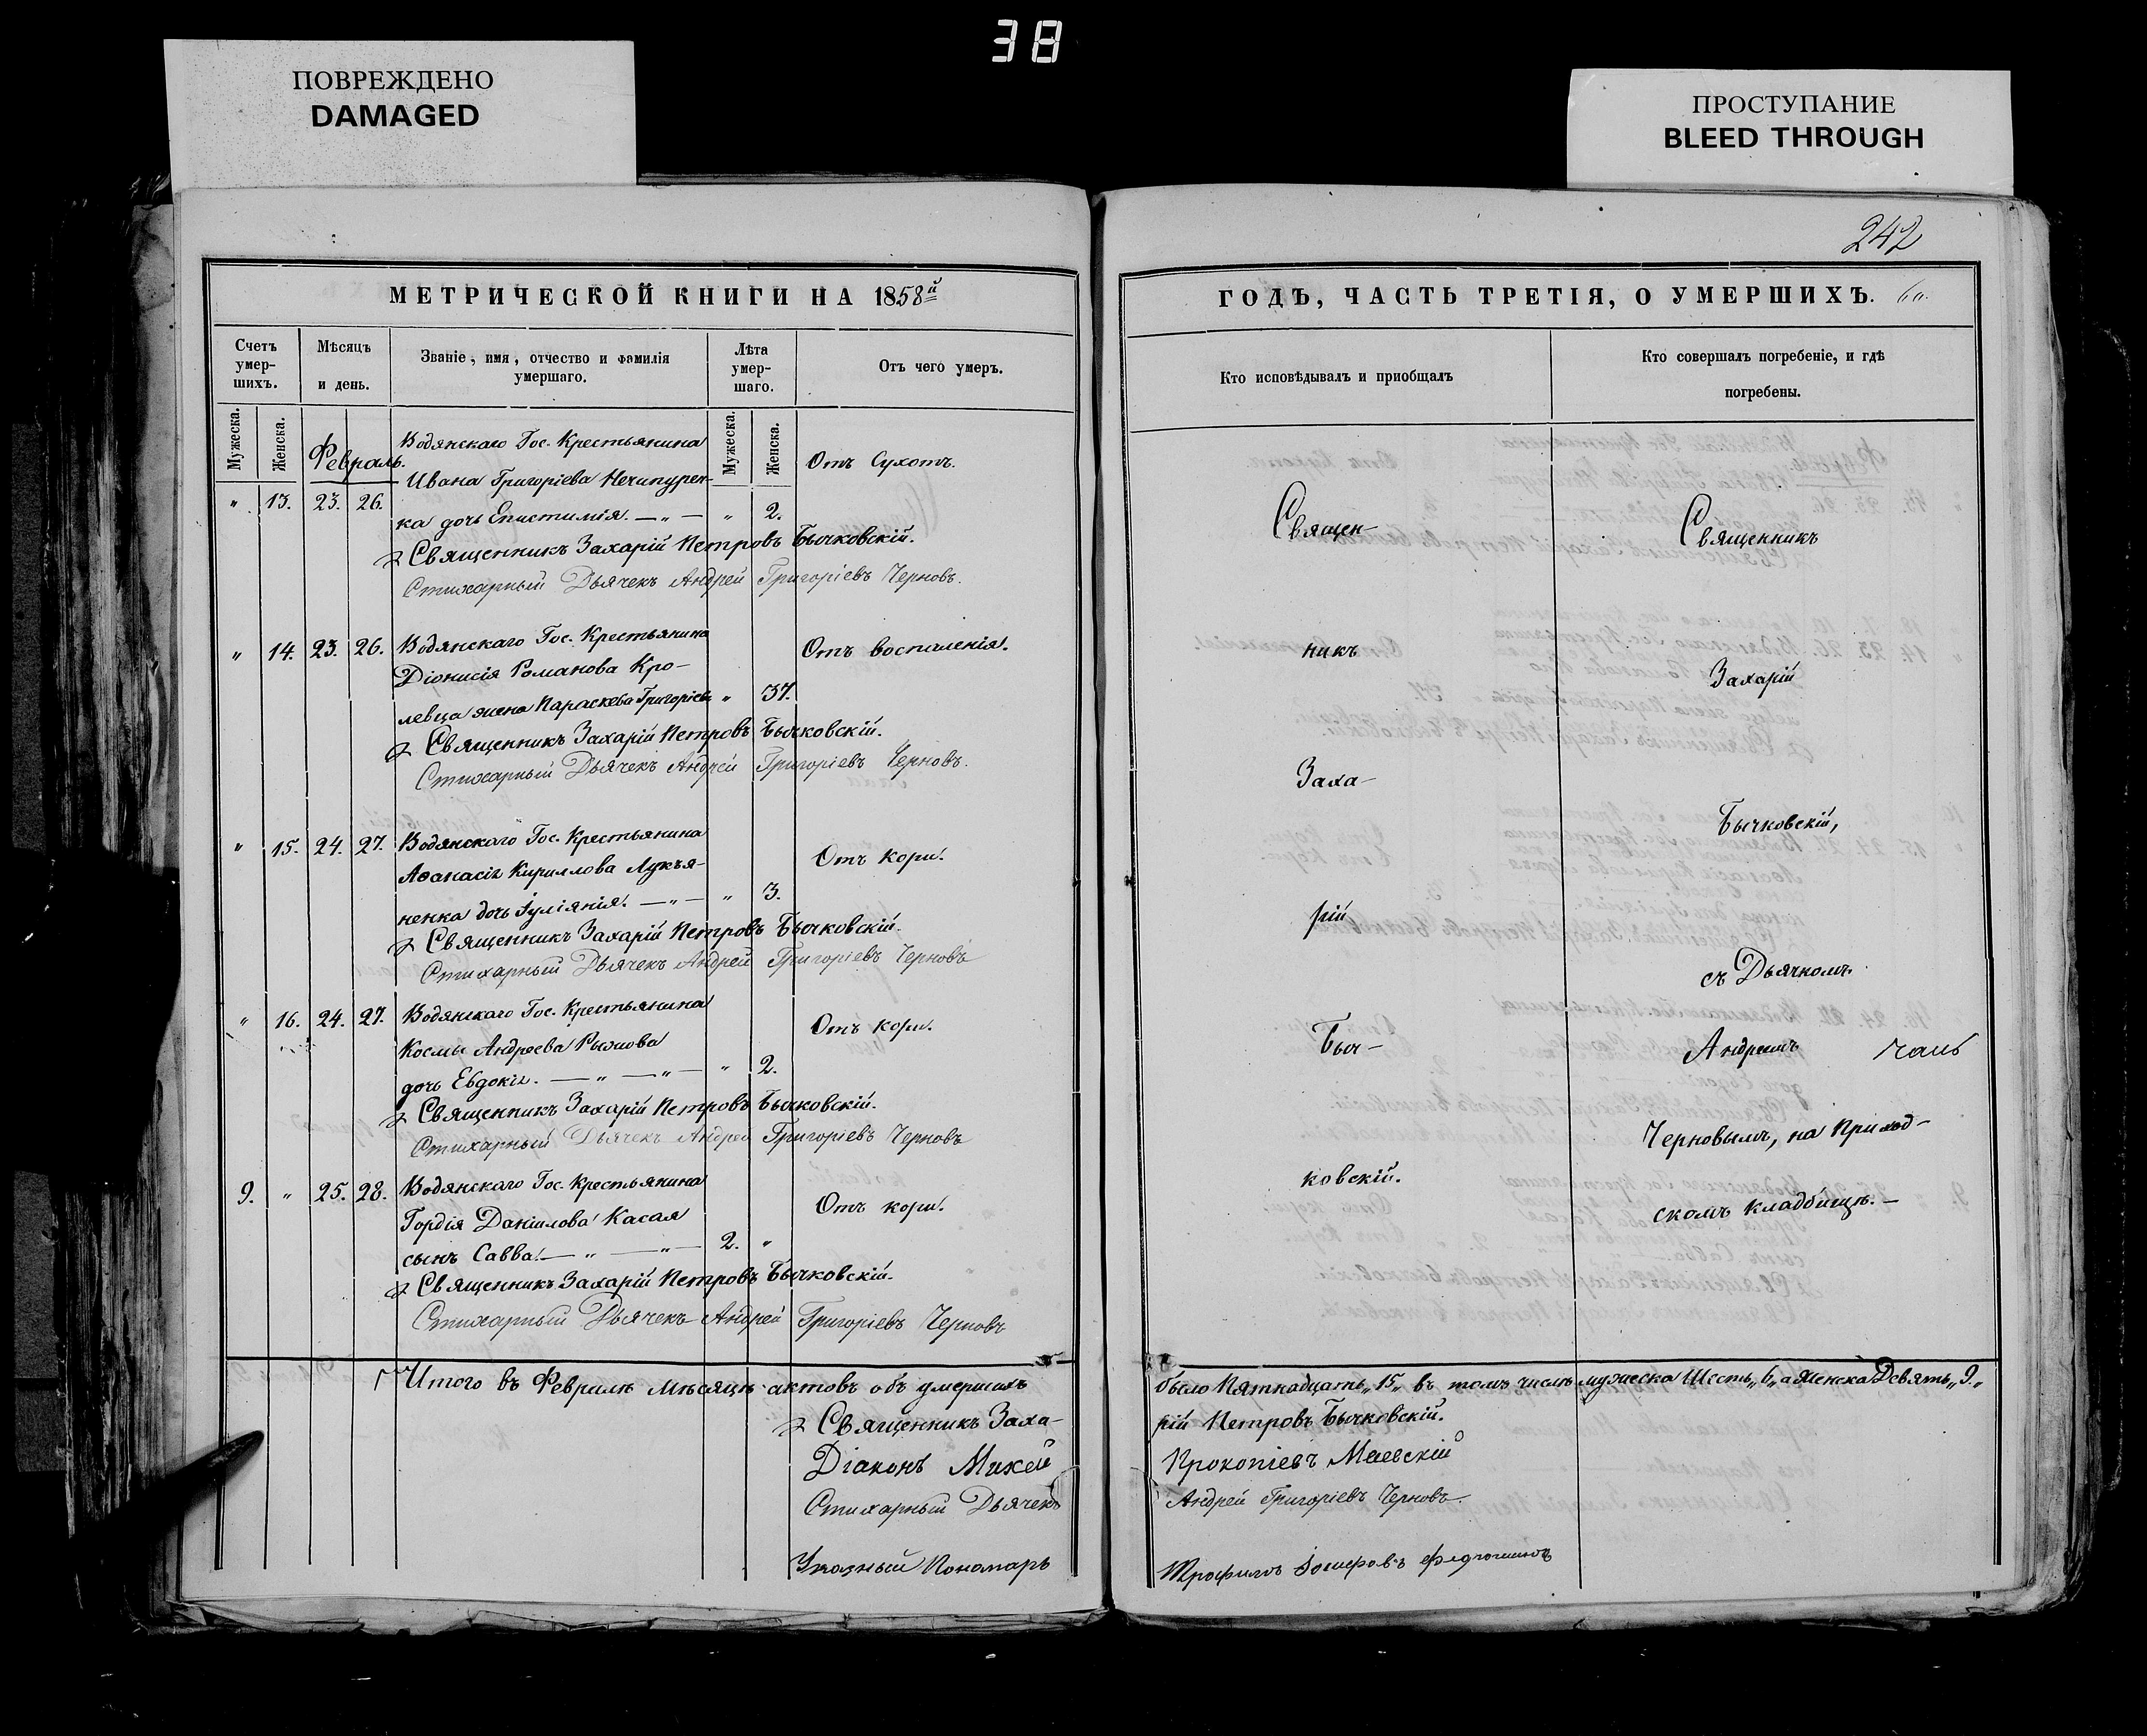 38
ПОВРЕЖДЕНО
DAMAGED
ПРОСТУПАНИЕ
BLEED THROUGH
242
МЕТРИЧЕСКОЙ КНИГИ НА 1858й
Счетъ умер-шихъ.
Мѣсяцъ и день.
Званіе, имя, отчество и фамилія умершаго.
Лѣта умер-шаго.
Отъ чего умеръ.
Мужеска.
Женска.
Мужеска.
Женска.
Февраль.
Водянскаго Гос. Крестьянина
Ивана Григоріева Нечипурен-
Отъ Сухотъ.
" 13. 23. 26. ка дочь Епистимія. —"— " 2.
Священникъ Захарій Петровъ Бычковскій.
Стихарный Дьячекъ Андрей Григоріевъ Черновъ.
" 14. 23. 26. Водянскаго Гос. Крестьянина
Отъ воспаленія.
Діонисія Романова Кро-
левца жена Параскева Григоріева " 37.
Священникъ Захарій Петровъ Бычковскій.
Стихарный Дьячекъ Андрей Григоріевъ Черновъ.
" 15. 24. 27. Водянскаго Гос. Крестьянина
Отъ кори.
Аѳанасія Кириллова Лукья-
ненка дочь Іуліянія. —"— " 3.
Священникъ Захарій Петровъ Бычковскій.
Стихарный Дьячекъ Андрей Григоріевъ Черновъ
" 16. 24. 27. Водянскаго Гос. Крестьянина
Отъ кори.
Космы Андреева Рыжова
дочь Евдокія. —"—"— " 2.
Священникъ Захарій Петровъ Бычковскій.
Стихарный Дьячекъ Андрей Григоріевъ Черновъ
9. " 25. 28. Водянскаго Гос. Крестьянина
Отъ кори.
Гордія Даніилова Касая
сынъ Савва. —"—"— 2. "
Священникъ Захарій Петровъ Бычковскій.
Стихарный Дьячекъ Андрей Григоріевъ Черновъ
Итого въ Февралѣ мѣсяцѣ актовъ объ умершихъ
Священникъ Заха-
Діаконъ Михей
Стихарный Дьячекъ
Указный Пономарь
ГОДЪ, ЧАСТЬ ТРЕТІЯ, О УМЕРШИХЪ.
Кто исповѣдывалъ и приобщалъ
Кто совершалъ погребеніе, и гдѣ погребены.
Священ-
никъ
Заха-
рій
Быч-
ковскій.
Священникъ
Захарій
Бычковскій,
съ Дьячкомъ
Андреемъ
Черновымъ, на Приход-
скомъ кладбищѣ. —
было Пятнадцать „15„ въ томъ числѣ мужеска Шесть „6„ а Женска Девять „9„
рій Петровъ Бычковскій.
Прокопіевъ Маевскій
Андрей Григоріевъ Черновъ.
Трофимъ